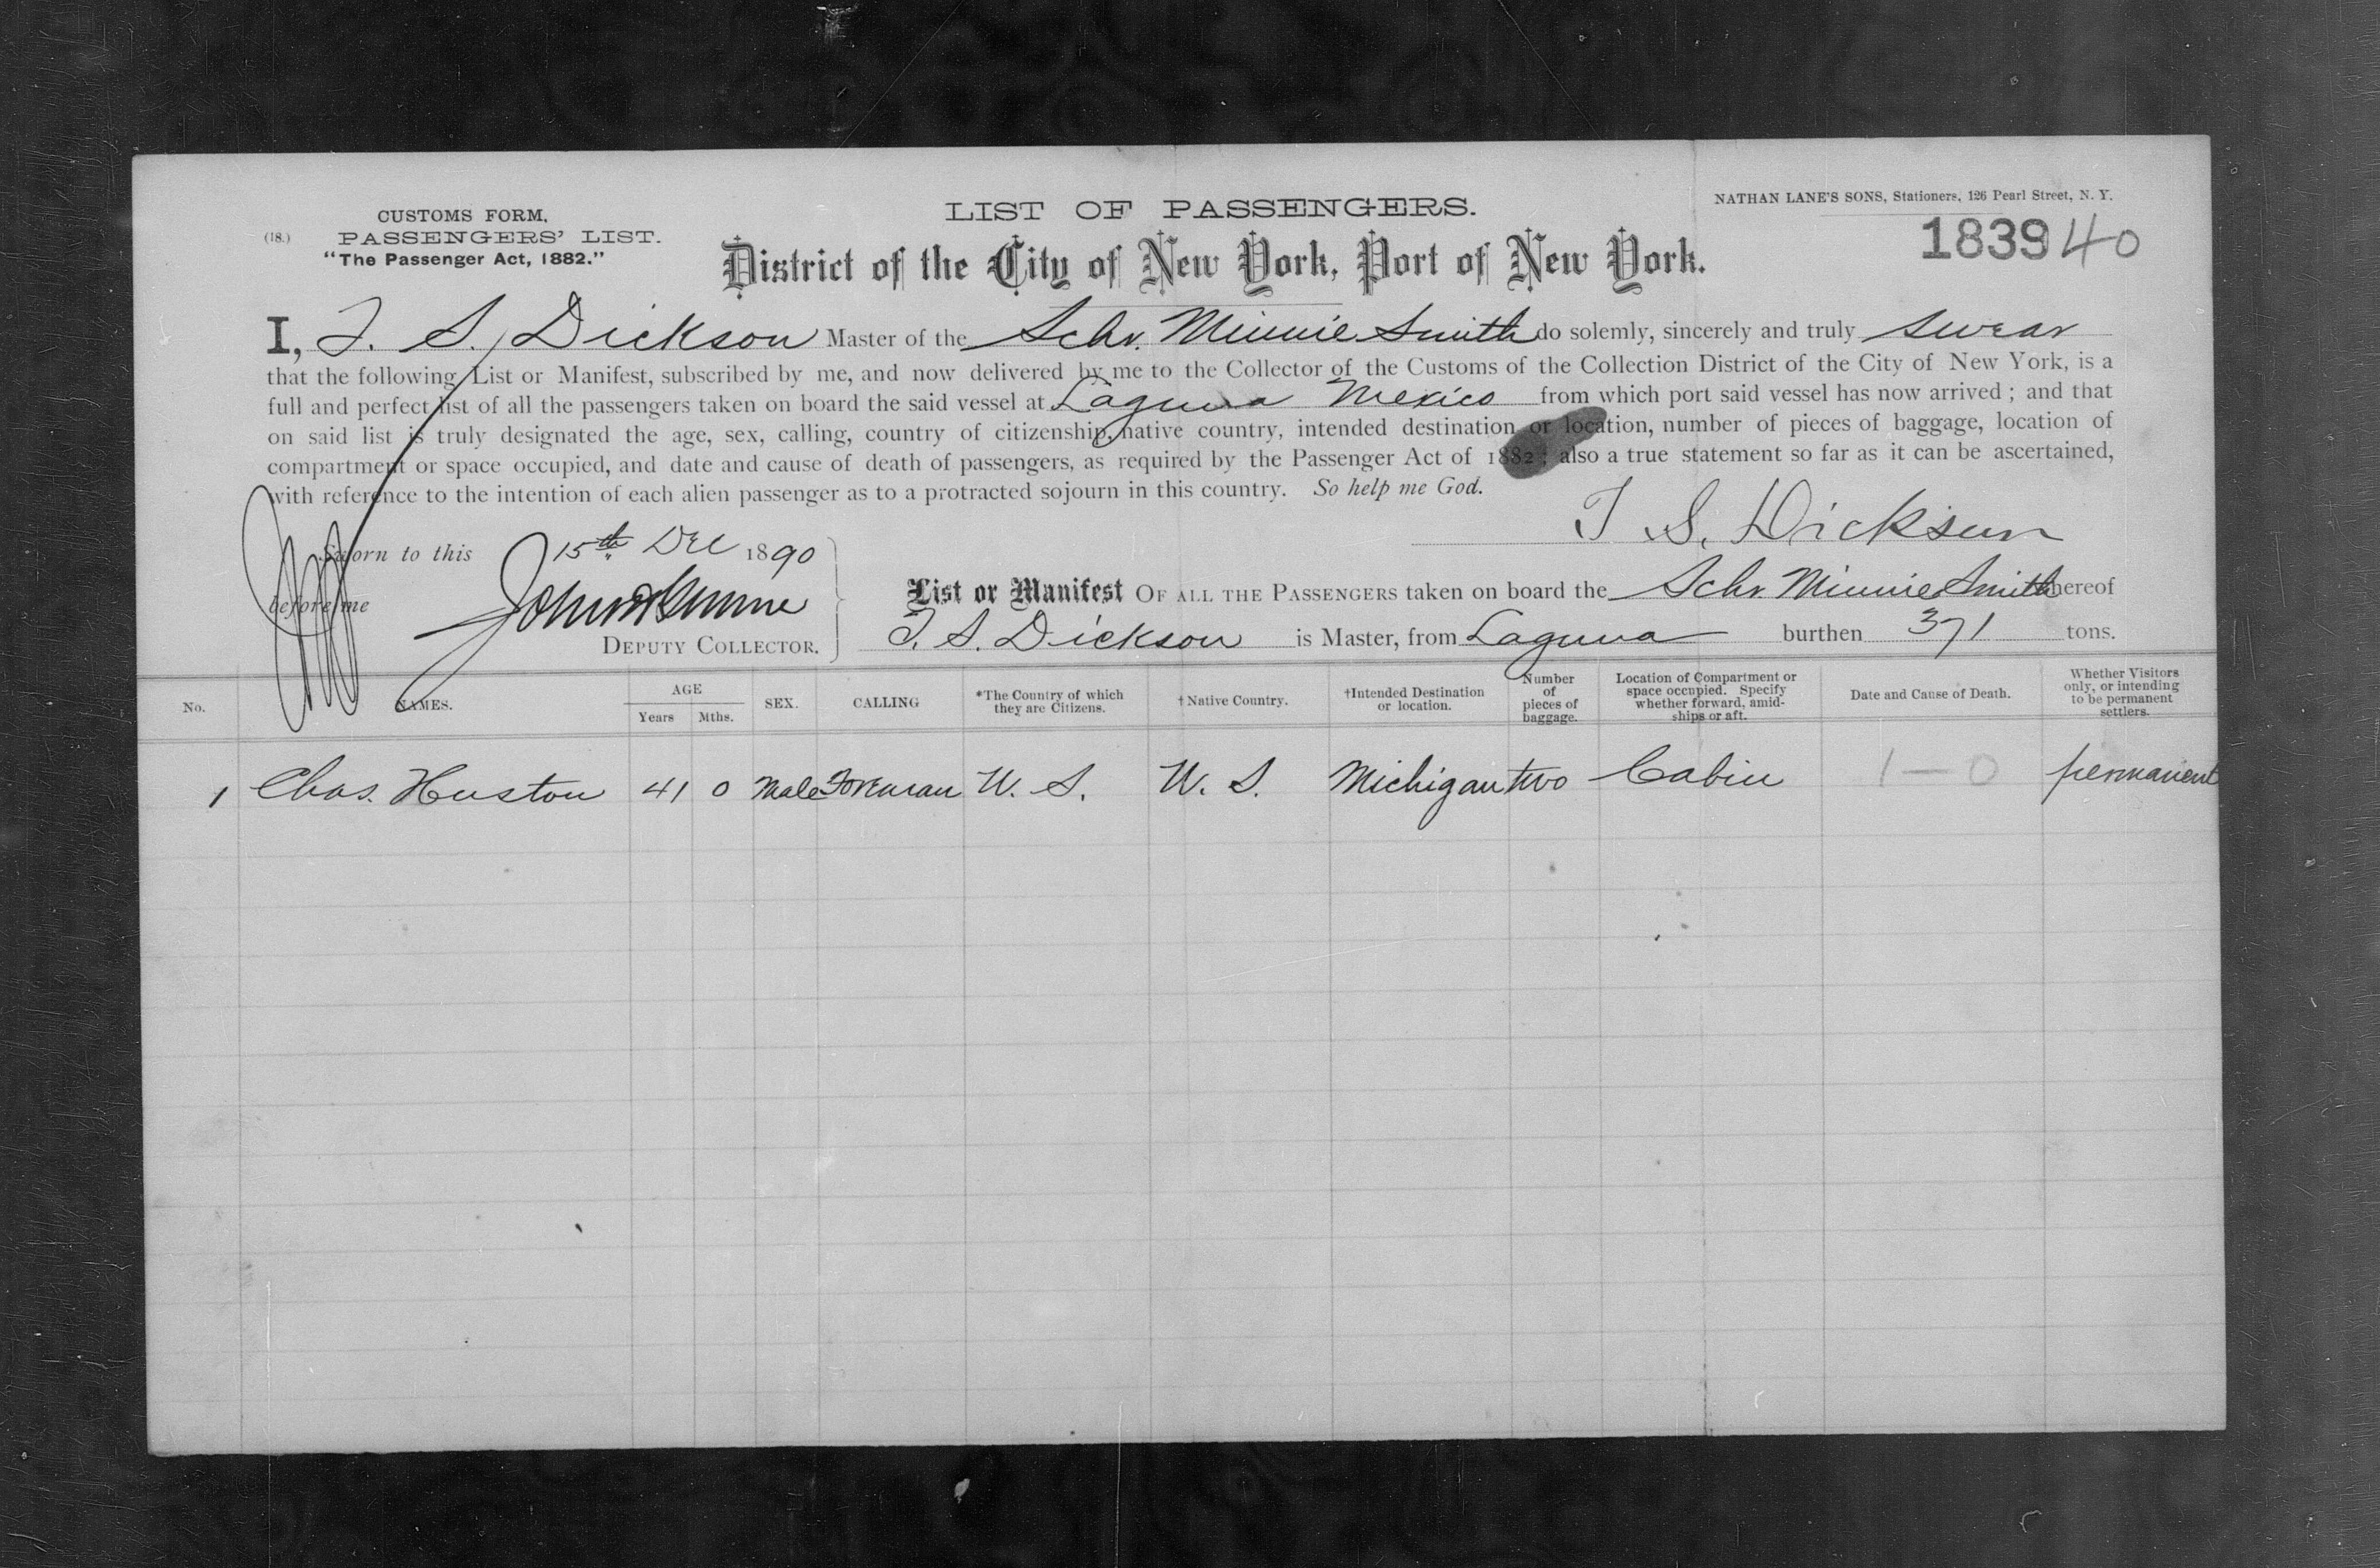 NATHAN LANE'S SONS, Stationers, 126 Pearl Street, N. Y.
LIST OF PASSENGERS.
CUSTOMS FORM,
(18.) PASSENGERS' LIST.
"The Passenger Act, 1882."
183940
District of the City of New York, Port of New York.
I, T. S. Dickson Master of the Schr. Minnie Smith do solemly, sincerely and truly swear
that the following List or Manifest, subscribed by me, and now delivered by me to the Collector of the Customs of the Collection District of the City of New York, is a
full and perfect list of all the passengers taken on board the said vessel at Laguna Mexico from which port said vessel has now arrived ; and that
on said list is truly designated the age, sex, calling, country of citizenship, native country, intended destination or location, number of pieces of baggage, location of
compartment or space occupied, and date and cause of death of passengers, as required by the Passenger Act of 1882 ; also a true statement so far as it can be ascertained,
with reference to the intention of each alien passenger as to a protracted sojourn in this country. So help me God.
T S. Dickson
Sworn to this 15th Dec 1890
before me
DEPUTY COLLECTOR.
List or Manifest OF ALL THE PASSENGERS taken on board the Schr. Minnie Smith whereof
T. S. Dickson is Master, from Laguna burthen 371 tons.
No. NAMES. AGE Years Mths. SEX. CALLING *The Country of which they are Citizens. †Native Country. †Intended Destination or location. Number of pieces of baggage. Location of Compartment or space occupied. Specify whether forward, amid-ships or aft. Date and Cause of Death. Whether Visitors only, or intending to be permanent settlers.
1 Chas. Huston 41 0 Male Foreman U. S. U. S. Michigan two Cabin 1—0 permanent